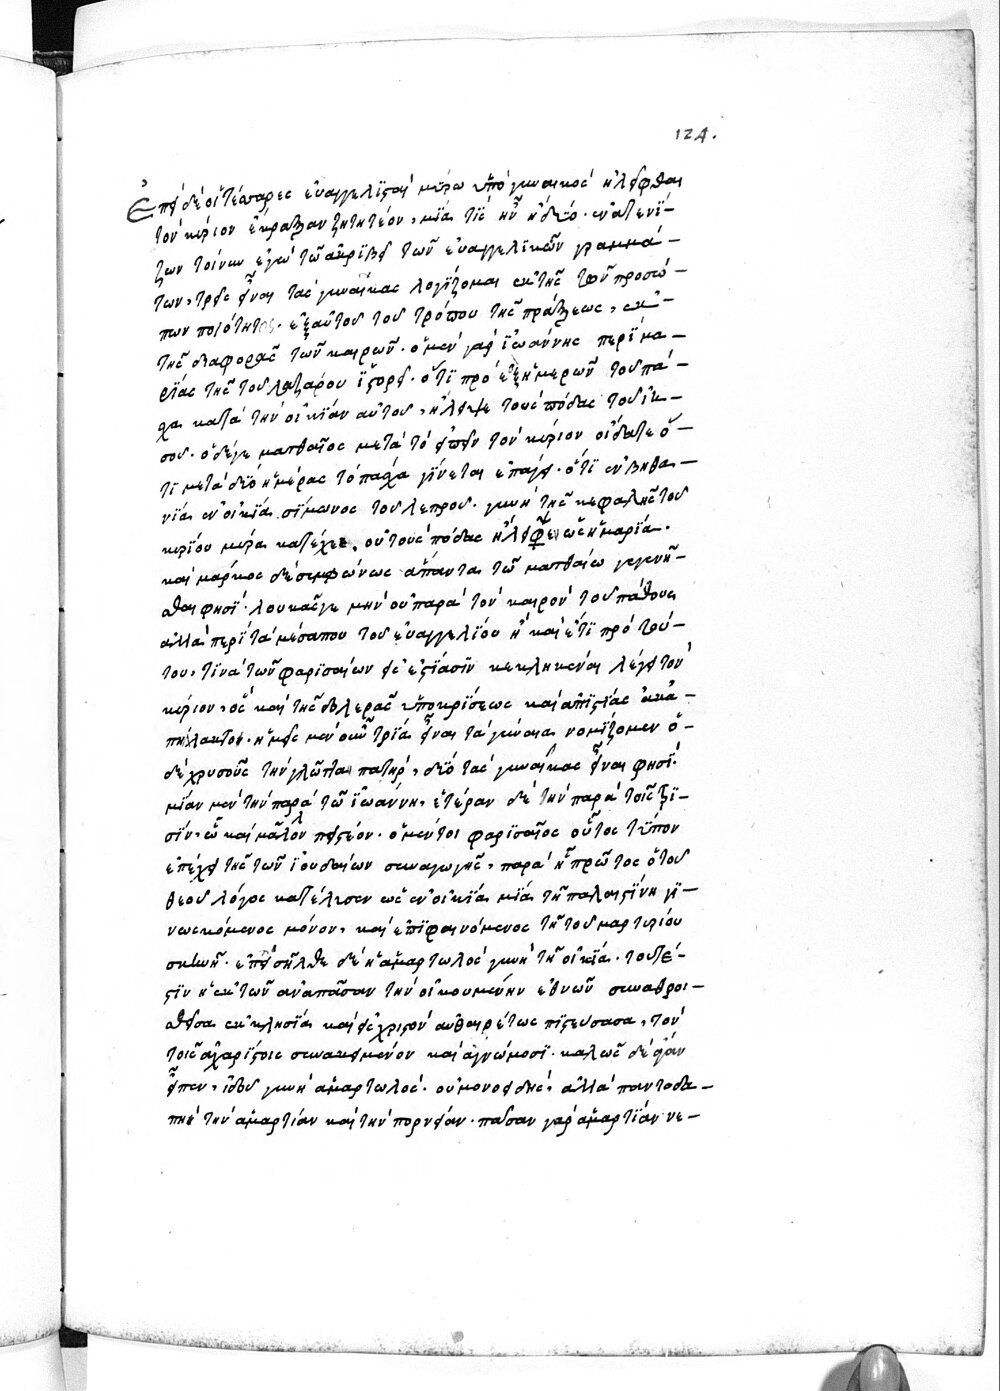 124.
Ἐπεὶ δὲ οἱ τέσσαρες εὐαγγελϊσταὶ μύρω ὑπὸ γυναικὸς ἠλεῖφθαι
τὸν κύριον ἐκραξαν ζητητέον, μία τίς ἦν ἢ δύο· ἐνατενί–
ζων τοίνυν ἐγὼ τῶ ἀκριβεῖ τῶν εὐαγγελϊκῶν γραμμά–
των, τρεῖς εἶναι τὰς γυναίκας λογίζομαι ἐκ τῆς τῶν προσώ–
πων ποιότητος· ἐξ αὐτοῦ τοῦ τρόπου τῆς πράξεως, ἐκ–
τῆς διαφορᾶς τῶν καιρῶν· ὁ μὲν γὰρ ἰωάννης περὶ μα–
ρίας τῆς τοῦ λαζάρου ἱστορεῖ· ὅτι πρὸ ἓξ ἡμερῶν τοῦ πά–
χα κατὰ τὴν οἰκίαν αὐτοῦ, ἤλειψε τοὺς πόδας τοῦ ἰη–
σοῦ· ὁ δέ γε ματθαῖος μετὰ τὸ εἰπεῖν τὸν κύριον οἴδατε ὅ–
τι μετὰ δύο ἡμέρας τὸ πάσχα γίνεται ἐπάγει· ὅτι ἐν βηθα–
νία ἐν οἰκία σίμωνος τοῦ λεπροῦ· γυνὴ τῆς κεφαλῆς τοῦ
κυρίου μύρα κατέχεε, οὐ τοὺς πόδας ἤλειφεν ὡς ἡ μαρία·
καὶ μάρκος δὲ συμφώνως ἅπαντα τῶ ματθαίω γεγενῆ–
σθαι φησί· λουκᾶς γε μὴν οὐ παρὰ τὸν καιρὸν τοῦ πάθους
ἀλλὰ περὶ τὰ μέσα που τοῦ εὐαγγελίου ἢ καὶ ἔτι πρὸ τού–
του, τινὰ τῶν φαρισαίων εἰς ἑστίασιν κεκληκέναι λέγει τὸν
κύριον, ὃς καὶ τῆς βλεράς ὑποκρίσεως καὶ ἀπιστίας ἀκα–
πήλακτον· ἡμεῖς μὲν οὖν τρία εἶναι τὰ γύναια νομίζομεν ὁ–
δὲ χρυσοῦς τὴν γλῶτταν πατὴρ, δύο τὰς γυναῖκας εἶναι φησὶ·
μίαν μὲν τὴν παρὰ τῶ ἰωάννη, ἑτέραν δὲ τὴν παρὰ τοῖς τρι–
σίν, ὧ καὶ μᾶλλον πειστέον· ὁ μέντοι φαρισαῖος οὗτος τύπον
ἐπέχει τῆς τῶν ἰουδαίων συναγωγῆς, παρὰ ἧ πρῶτος ὁ τοῦ
θεοῦ λόγος κατέλυσεν ὡς ἐν οἰκία μιᾶ τῆ παλαιστίνη γι–
νωσκόμενος μόνον, καὶ ἐπιφαινόμενος τῆ τοῦ μαρτυρίου
σκηνῆ· ἐπεισῆλθε δὲ ἡ ἁμαρτωλὸς γυνὴ τῆ οἰκία· τουτέ–
στιν ἡ ἐκ τῶν ἀνὰ πᾶσαν τὴν οἰκουμένην ἐθνῶν συναθροι–
σθεῖσα ἐκκλησία καὶ εἰς χριστὸν αὐθαιρέτως πιστεύσασα, τὸν
τοῖς ἀχαρίστοις συνακείμενον καὶ ἀγνώμοσι· καλῶς δὲ φάν
εἶπεν, ἰδοὺ γυνὴ ἁμαρτωλὸς· οὐ μονοειδὴς, ἀλλὰ παντοδα–
πὴ τὴν ἁμαρτίαν καὶ τὴν πορνείαν· πᾶσαν γὰρ ἁμαρτίαν νε–